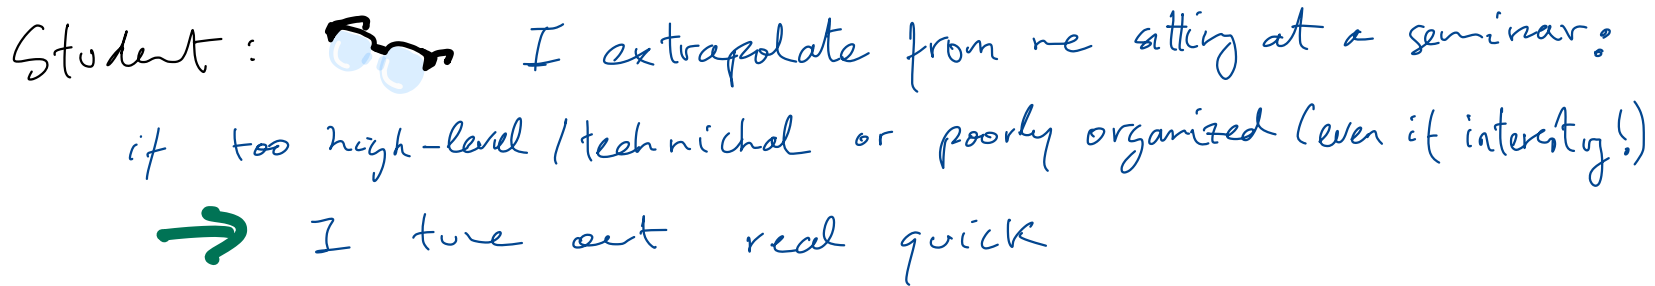 Student: I extrapolate from me sitting at a seminar:
if too high-level/technichal or poorly organized (even if interesting!)
I tune out real quick